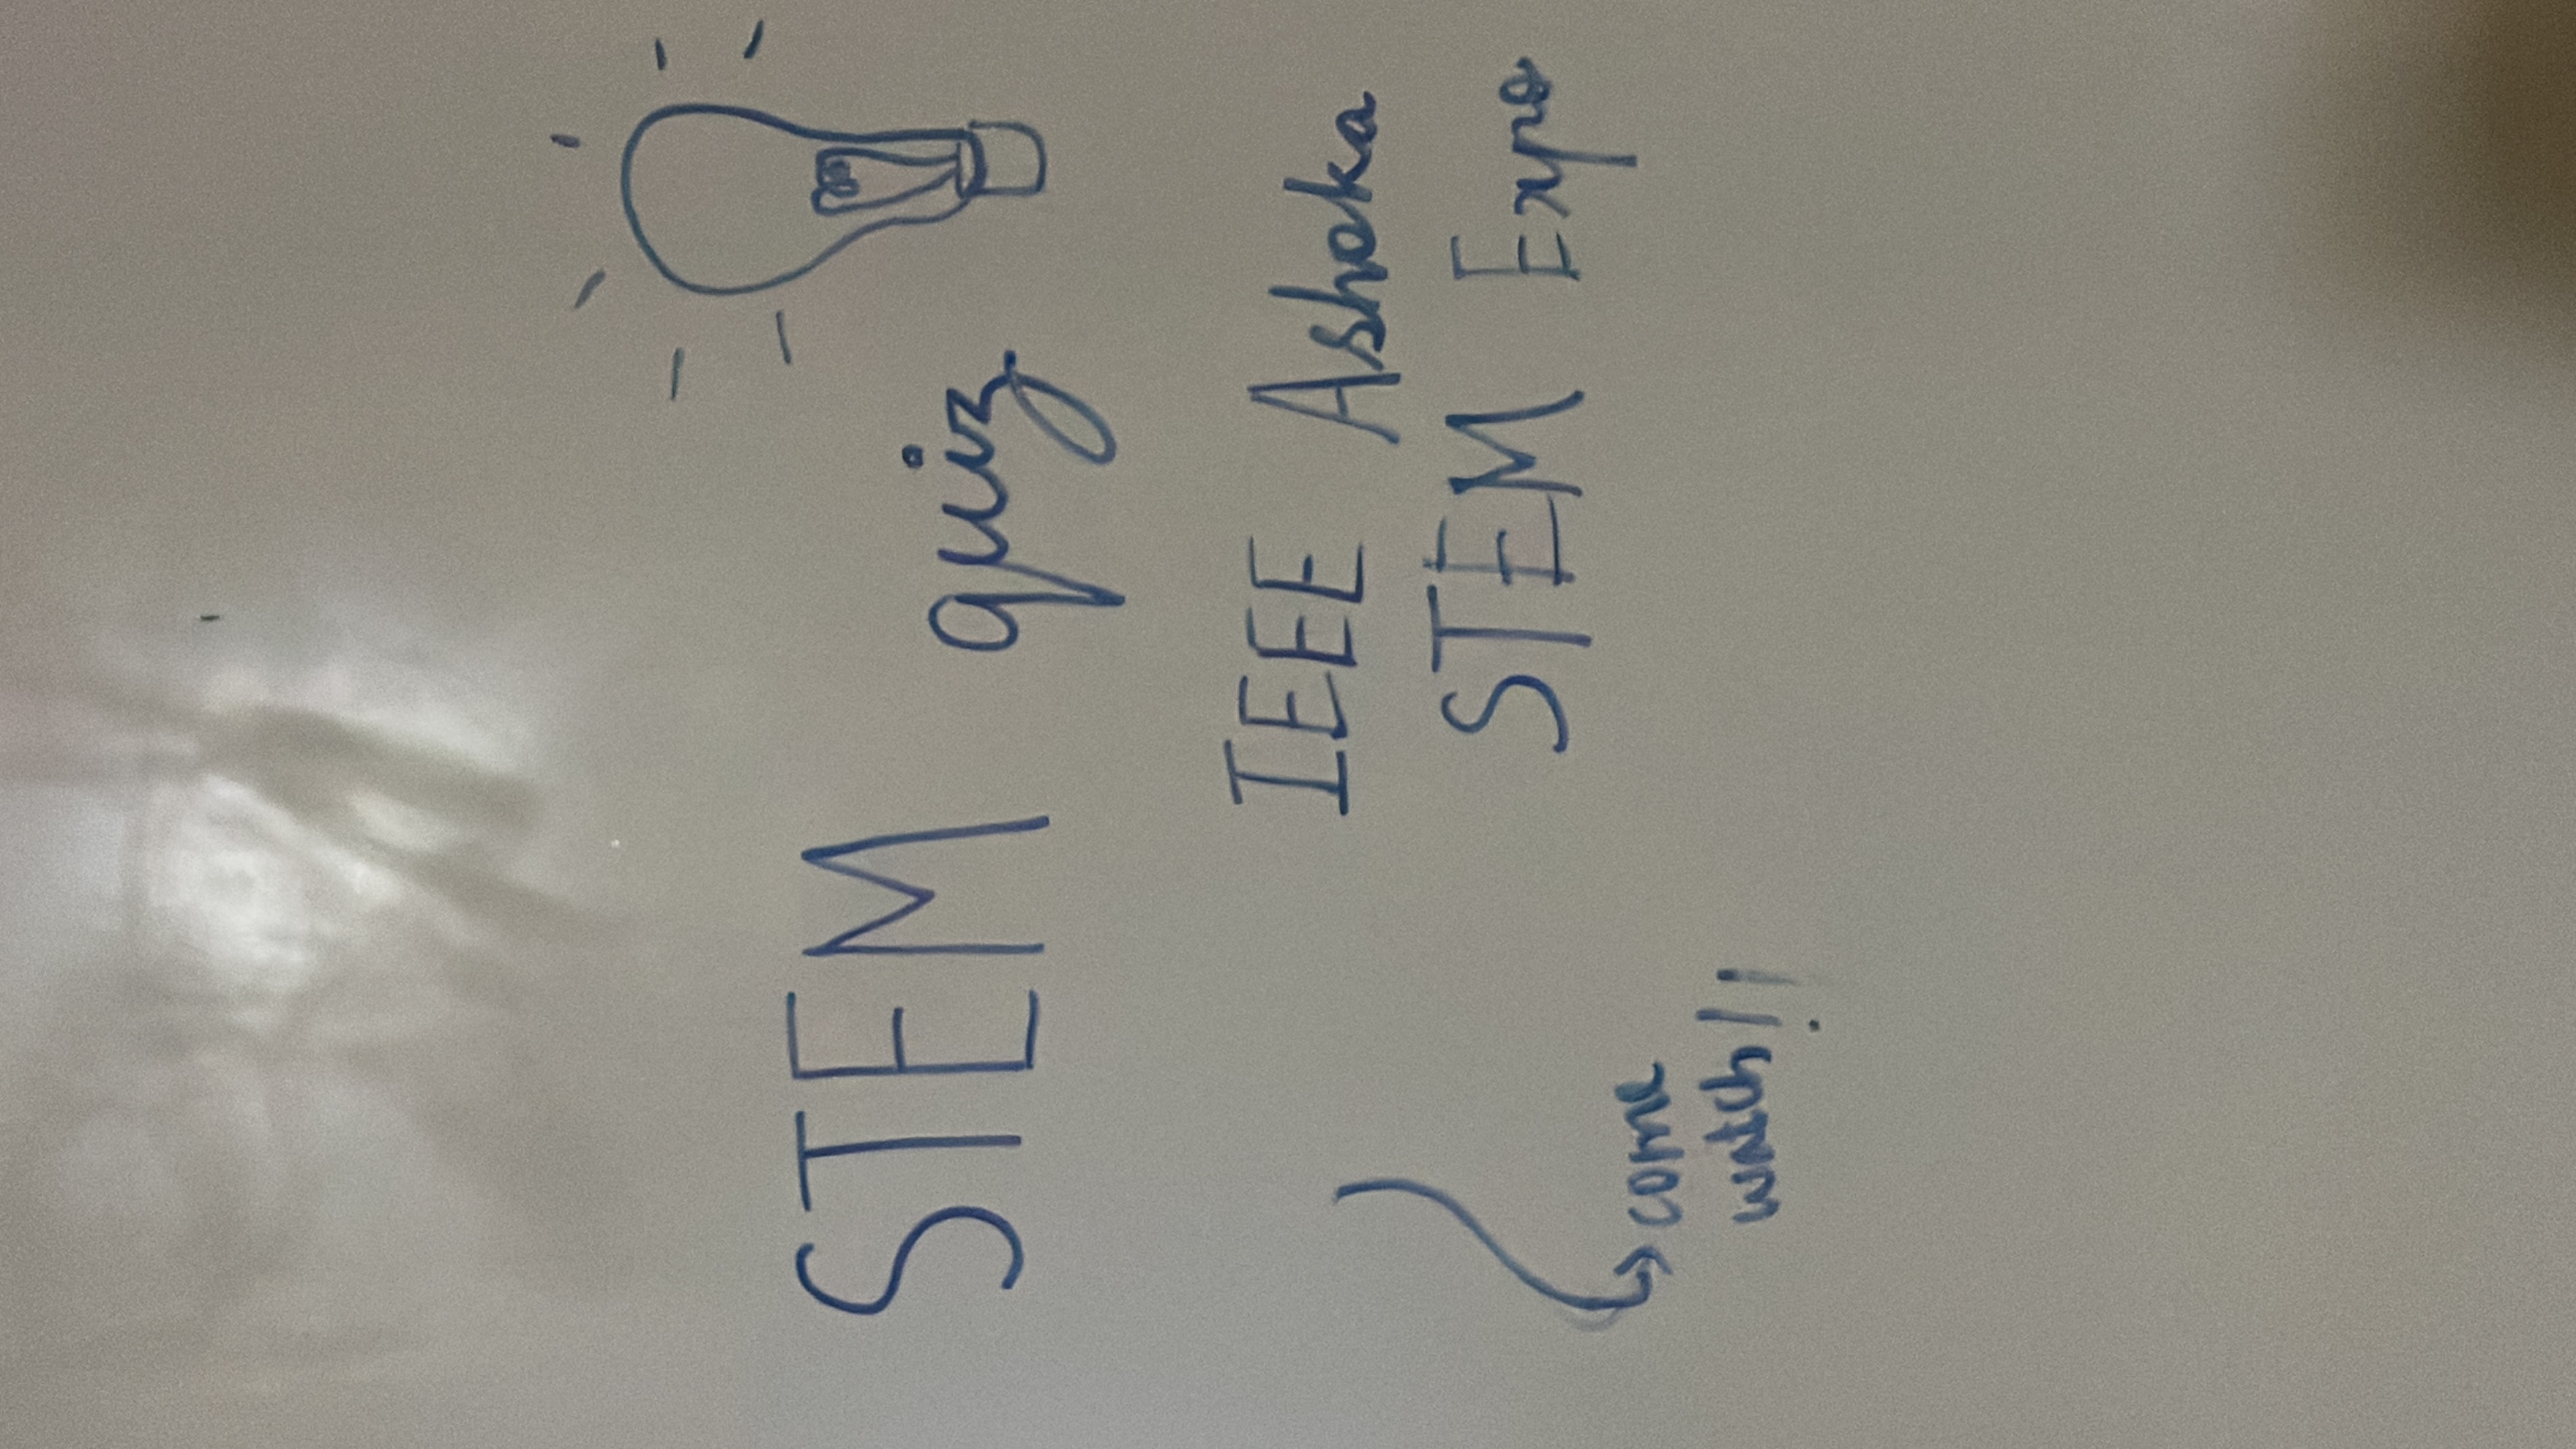 STEM quiz
IEEE Ashoka
STEM Expo
come
watch!!